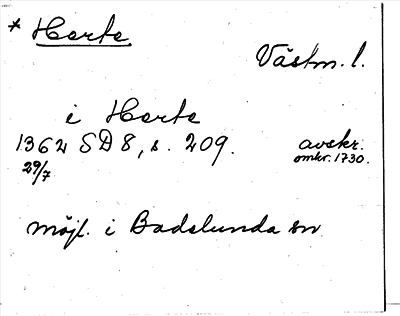 * Harte
Västm. l.
i Harte
1362 SD 8, s. 209. avskr.
29/7 omkr. 1730.
möjl. i Badelunda sn